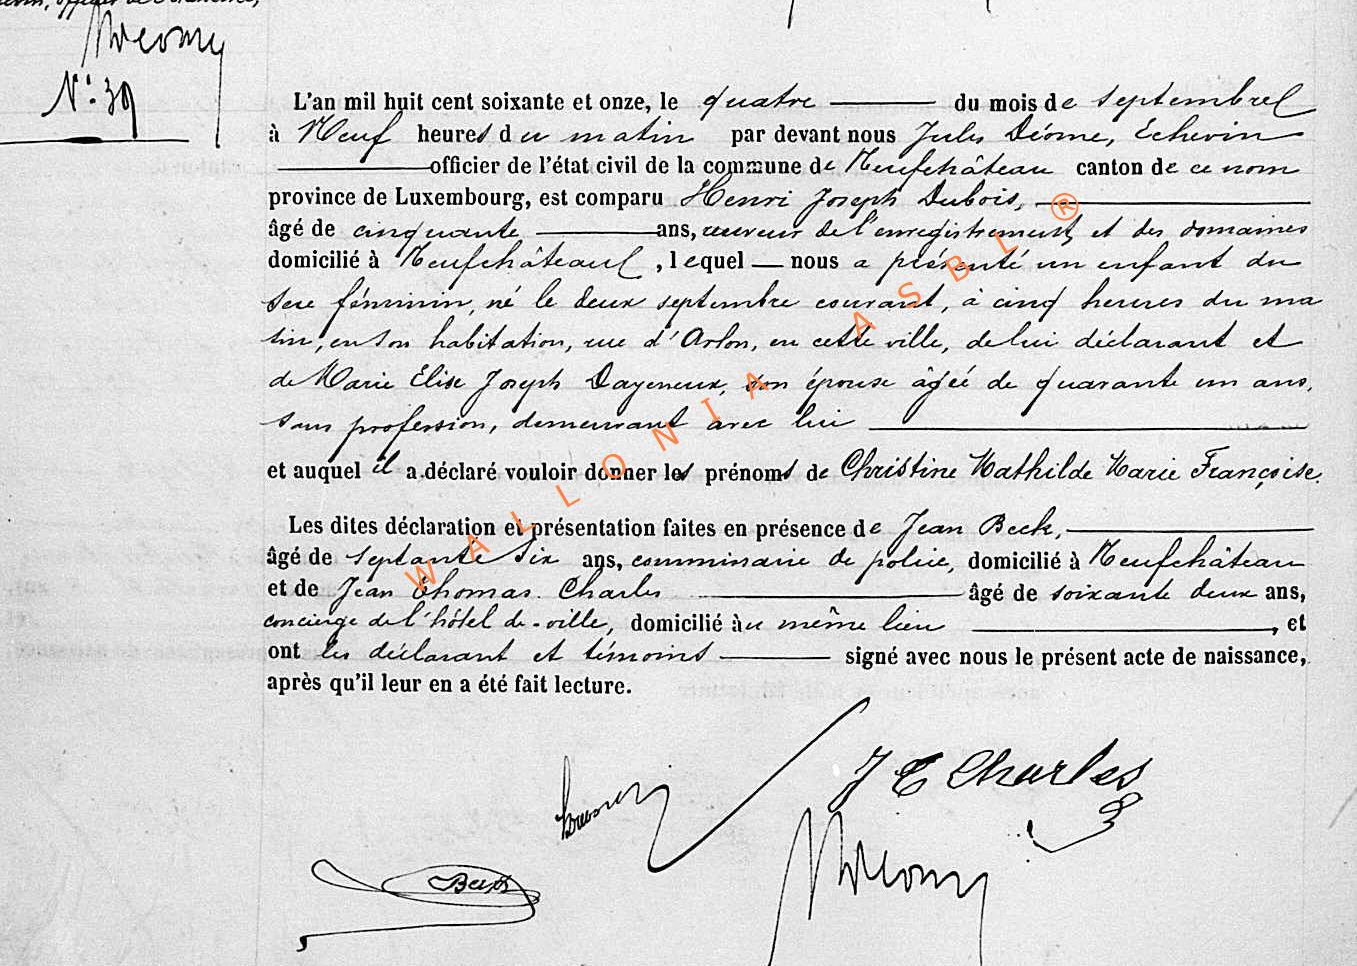 officier de l'état civil,
N°. 39
L'an mil huit cent soixante et onze, le quatre du mois de septembre
à Neuf heures du matin par devant nous Jules Déome, Echevin
officier de l'état civil de la commune de Neufchâteau canton de ce nom
province de Luxembourg, est comparu Henri Joseph Dubois,
âgé de cinquante ans, receveur de l'enregistrement et des domaines
domicilié à Neufchâteau, lequel nous a présenté un enfant du
sexe féminin, né le deux septembre courant, à cinq heures du ma
tin, en son habitation, rue d'Arlon, en cette ville, de lui déclarant et
de Marie Elise Joseph Dayeneux, son épouse âgée de quarante un ans,
sans profession, demeurant avec lui
et auquel il a déclaré vouloir donner les prénoms de Christine Mathilde Marie Françoise.
Les dites déclaration et présentation faites en présence de Jean Beck,
âgé de septante six ans, commissaire de police, domicilié à Neufchâteau
et de Jean Thomas Charles âgé de soixante deux ans,
concierge de l'hôtel de-ville, domicilié au même lieu, et
ont les déclarant et témoins signé avec nous le présent acte de naissance,
après qu'il leur en a été fait lecture.
J T Charles
Beck
WALLONIA ASBL ®